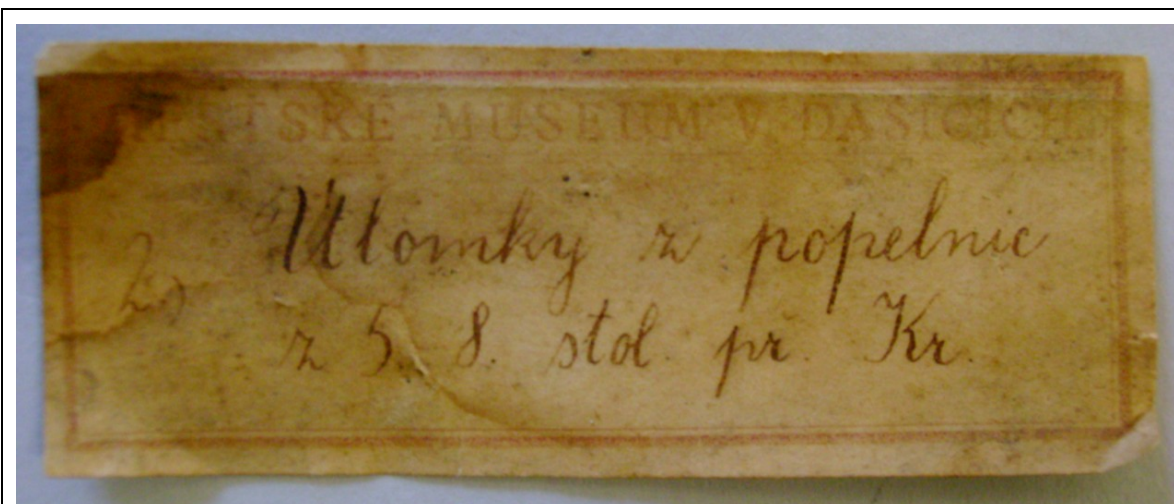 MĚSTSKÉ MUSEUM V DAŠICÍCH.
Útlomky z popelnic
2.)
z 5. 8. stol. př. Kr.